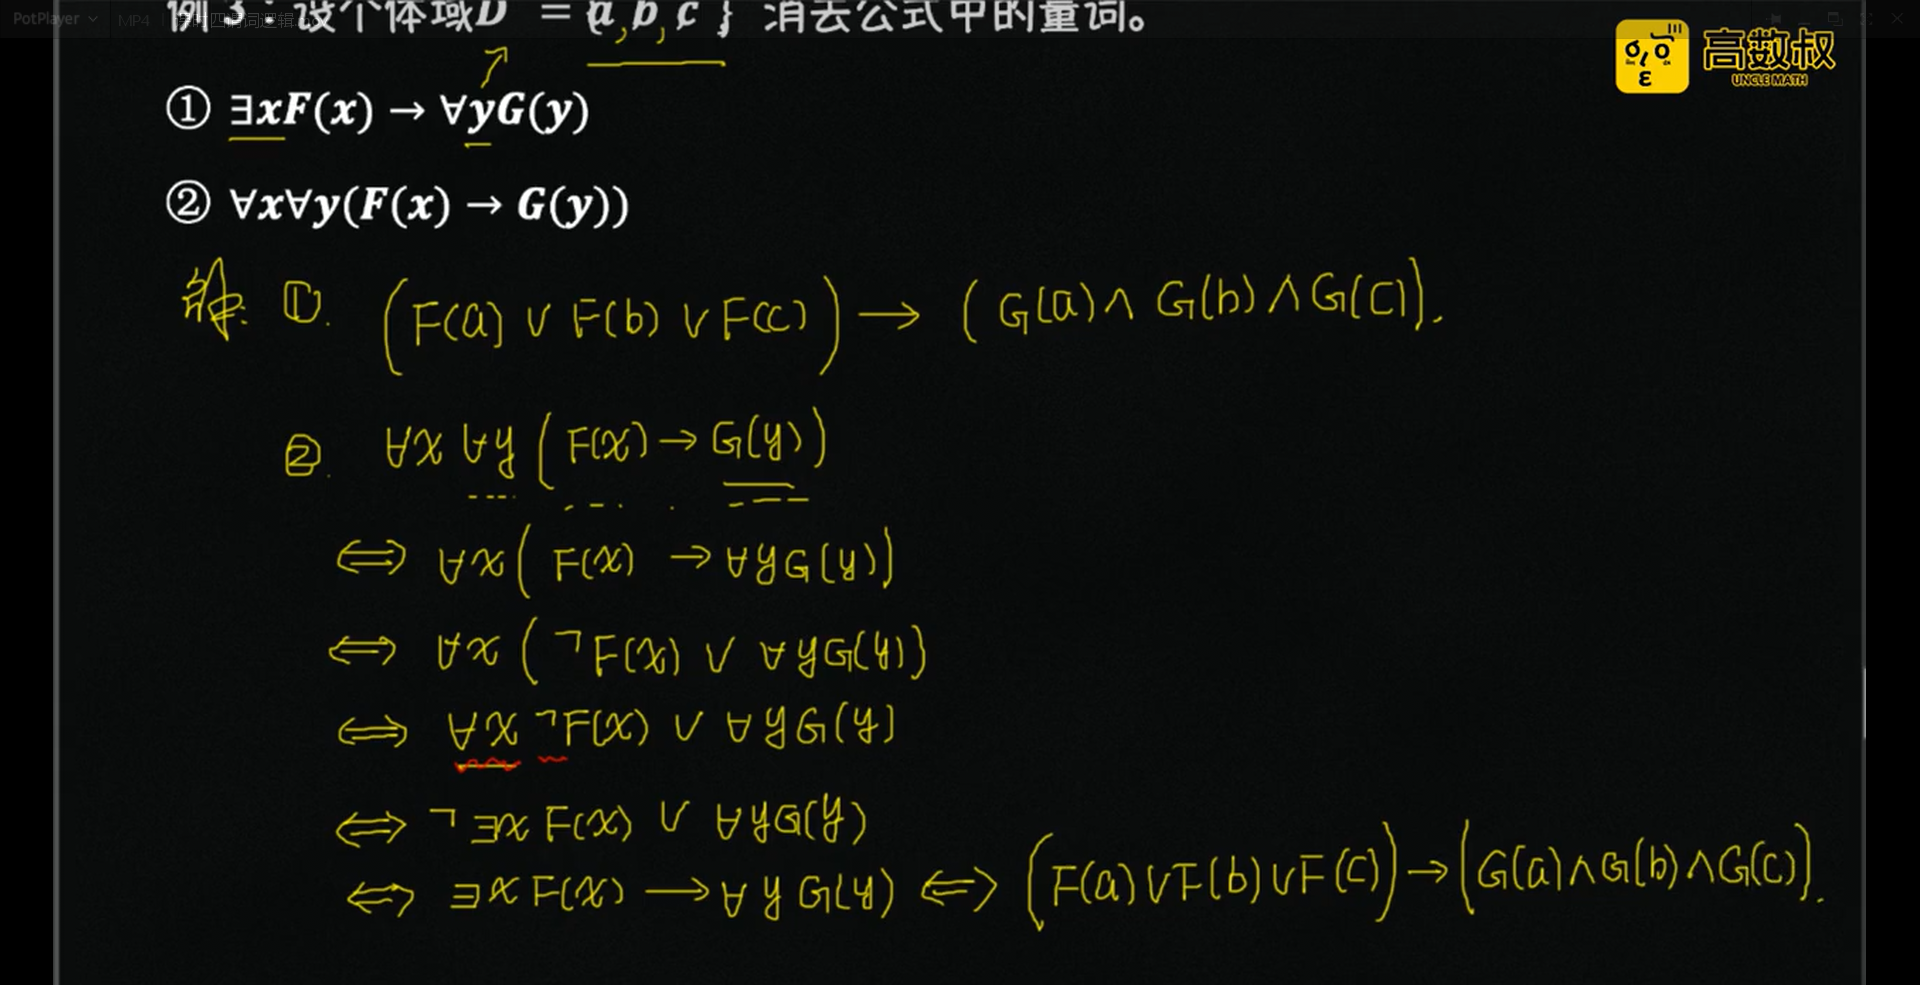 PotPlayer MP4
例 3：设个体域D = {a, b, c } 消去公式中的量词。
高数叔
UNCLE MATH
① ∃xF(x) → ∀yG(y)
② ∀x∀y(F(x) → G(y))
解: ①. (F(a) ∨ F(b) ∨ F(c)) → (G(a) ∧ G(b) ∧ G(c)).
②. ∀x ∀y (F(x) → G(y))
⟺ ∀x (F(x) → ∀yG(y))
⟺ ∀x (¬F(x) ∨ ∀yG(y))
⟺ ∀x ¬F(x) ∨ ∀yG(y)
⟺ ¬∃x F(x) ∨ ∀yG(y)
⟺ ∃x F(x) → ∀y G(y) ⟺ (F(a) ∨ F(b) ∨ F(c)) → (G(a) ∧ G(b) ∧ G(c)).